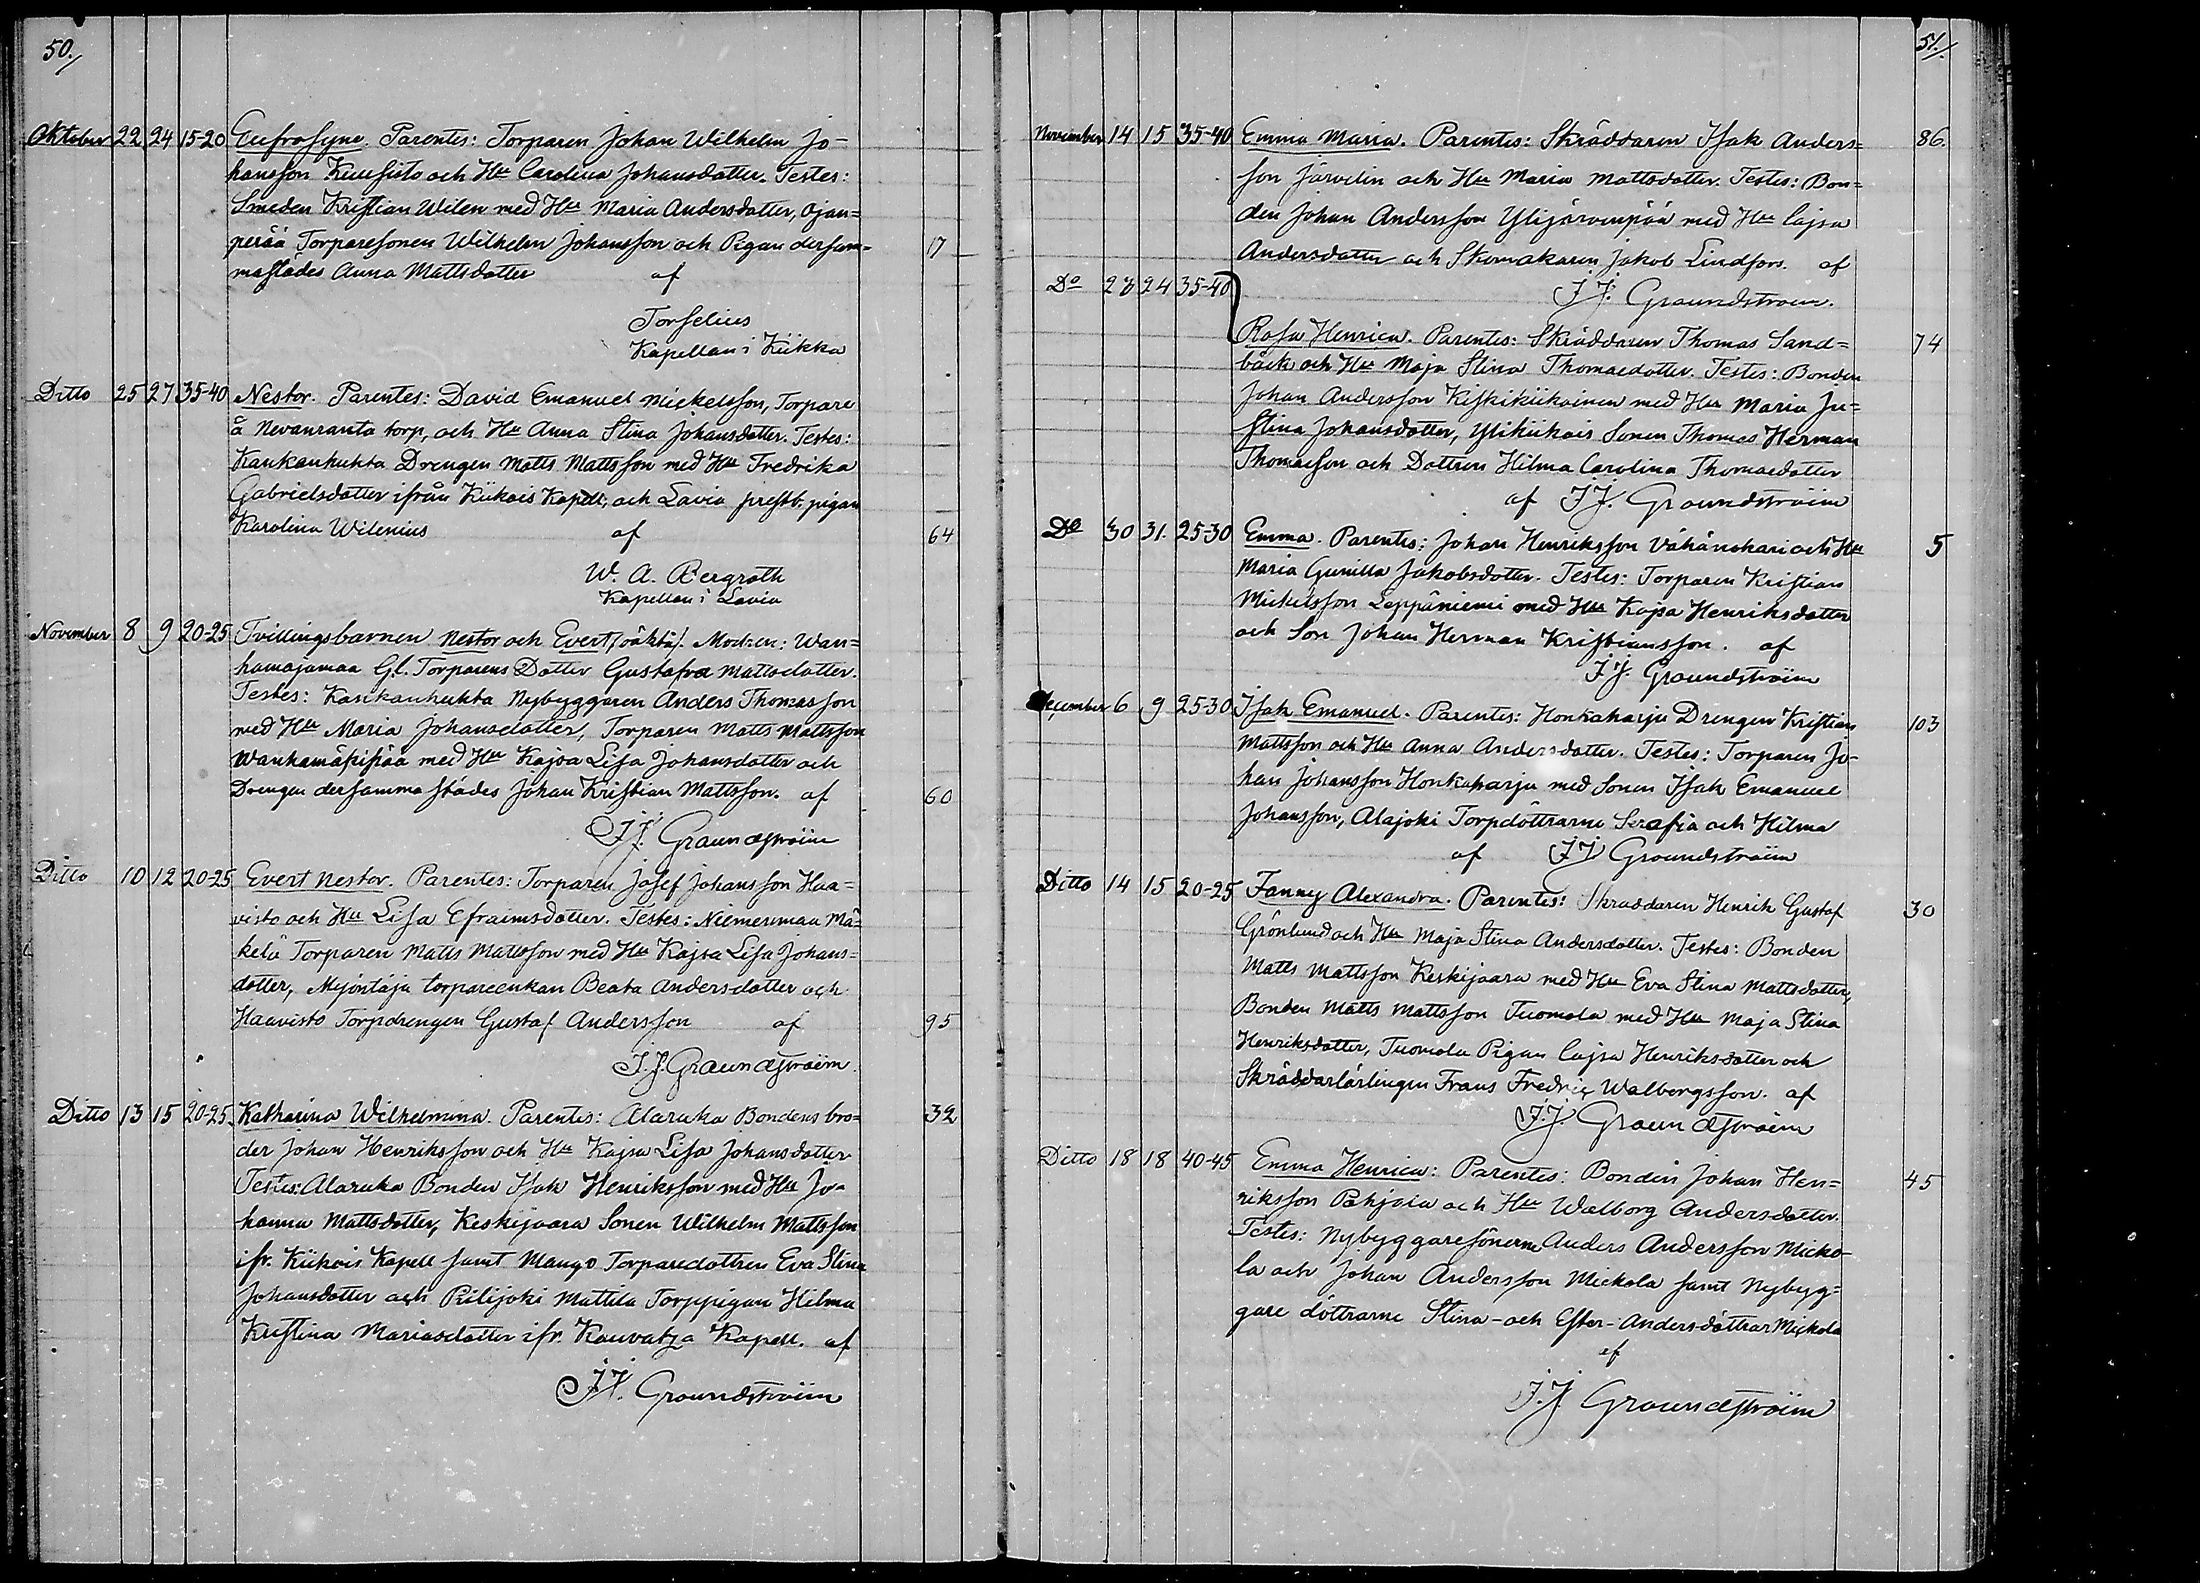 50./
Oktober 22 24 15-20 Eufrosyne. Parentes: Torparen Johan Wilhelm Jo-
hansson Kuusisto och Hu Carolina Johansdotter. Testes:
Smeden Kristian Wilen med Hu Maria Andersdotter, Ojan=
perää Torparesonen Wilhelm Johansson och Pigan dersam= 17
mastädes Anna Mattsdotter af
Torselius
Kapellan i Kiikka
Ditto 25 27 35-40 Nestor. Parentes: David Emanuel Mickelsson, Torpare
å Nevanranta torp, och Hu Anna Stina Johansdotter. Testes:
Kankanhuhta Drengen Matts Mattsson med Hu Fredrika
Gabrielsdotter ifrån Kiikois Kapell, och Lavia prestb. pigan
Karolina Wilenius af 64
W. A. Bergroth
Kapellan i Lavia
November 8 9 20-25 Tvillingsbarnen Nestor och Evert /:oäkta:/. Modren: Wan=
hamajamaa Gl. Torparens Dotter Gustafva Mattsdotter.
Testes: Kankanhuhta Nybyggaren Anders Thomasson
med Hu Maria Johansdotter, Torparen Matts Mattsson
Wanhamäpipää med Hu Kajsa Lisa Johansdotter och
Drengen dersammastädes Johan Kristian Mattsson. af 60
J.J. Groundström
Ditto 10 12 20-25 Evert Nestor. Parentes: Torparen Josef Johansson Haa=
visto och Hu Lisa Efraimsdotter. Testes: Niemenmaa Mä=
kelä Torparen Matts Mattsson med Hu Kajsa Lisa Johans=
dotter, Myöntäjä torpareenkan Beata Andersdotter och
Haavisto Torpdrengen Gustaf Andersson af 95
J.J. Groundström
Ditto 13 15 20-25. Katharina Wilhelmina. Parentes: Alaruka Bondens bro= 32
der Johan Henriksson och Hu Kajsa Lisa Johansdotter
Testes: Alaruka Bonden Isak Henriksson med Hu Jo-
hanna Mattsdotter, Keskijaara Sonen Wilhelm Mattsson
ifr. Kiikois Kapell samt Mango Torparedottren Eva Stina
Johansdotter och Piilijoki Mattila Torppigan Hilma
Kristina Mariasdotter ifr. Kauvatza Kapell. af
J.J. Groundström
51./
November 14 15 35-40 Emma Maria. Parentes: Skräddaren Isak Anders= 86.
son Järvelin och Hu Maria Mattsdotter. Testes: Bon=
den Johan Andersson Ylijärvenpää med Hu Cajsa
Andersdotter och Skomakaren Jakob Lindfors. af
J.J. Groundström.
Do 23 24 35-40
Rosa Henrica. Parentes: Skräddaren Thomas Sand= 74
bäck och Hu Maja Stina Thomasdotter. Testes: Bonden
Johan Andersson Kiskikiikoinen med Hu Maria Ju=
stina Johansdotter, Ylikiikois Sonen Thomas Herman
Thomasson och Dottren Hilma Carolina Thomasdotter
af J.J. Groundström
Do 30 31. 25-30 Emma. Parentes: Johan Henriksson Vähänchari och Hu 5
Maria Gunilla Jakobsdotter. Testes: Torparen Kristian
Mickelsson Leppäniemi med Hu Kajsa Henriksdotter
och Son Johan Herman Kristiansson. af
J.J. Groundström
December 6 9 25-30 Isak Emanuel. Parentes: Honkaharju Drengen Kristian 103
Mattsson och Hu Anna Andersdotter. Testes: Torparen Jo-
han Johansson Honkaharju med Sonen Isak Emanuel
Johansson, Alajoki Torpdöttrarne Serafia och Hilma
af J.J. Groundström
Ditto 14 15 20-25 Fanny Alexandra. Parentes: Skraddaren Henrik Gustaf 30
Grönlund och Hu Maja Stina Andersdotter. Testes: Bonden
Matts Mattsson Keskijaara med Hu Eva Stina Mattsdotter,
Bonden Matts Mattsson Tuomola med Hu Maja Stina
Henriksdotter, Tuomola Pigan Cajsa Henriksdotter och
Skräddarlärlingen Frans Fredric Walbergsson. af
J.J. Groundström
Ditto 18 18 40-45 Emma Henrica: Parentes: Bonden Johan Hen= 45
riksson Pohjola och Hu Walborg Andersdotter.
Testes: Nybyggaresönerne Anders Andersson Micko-
la och Johan Andersson Mickola samt Nybyg=
gare döttrarne Stina- och Ester-Andersdöttrar Mickola
af
J.J. Groundström